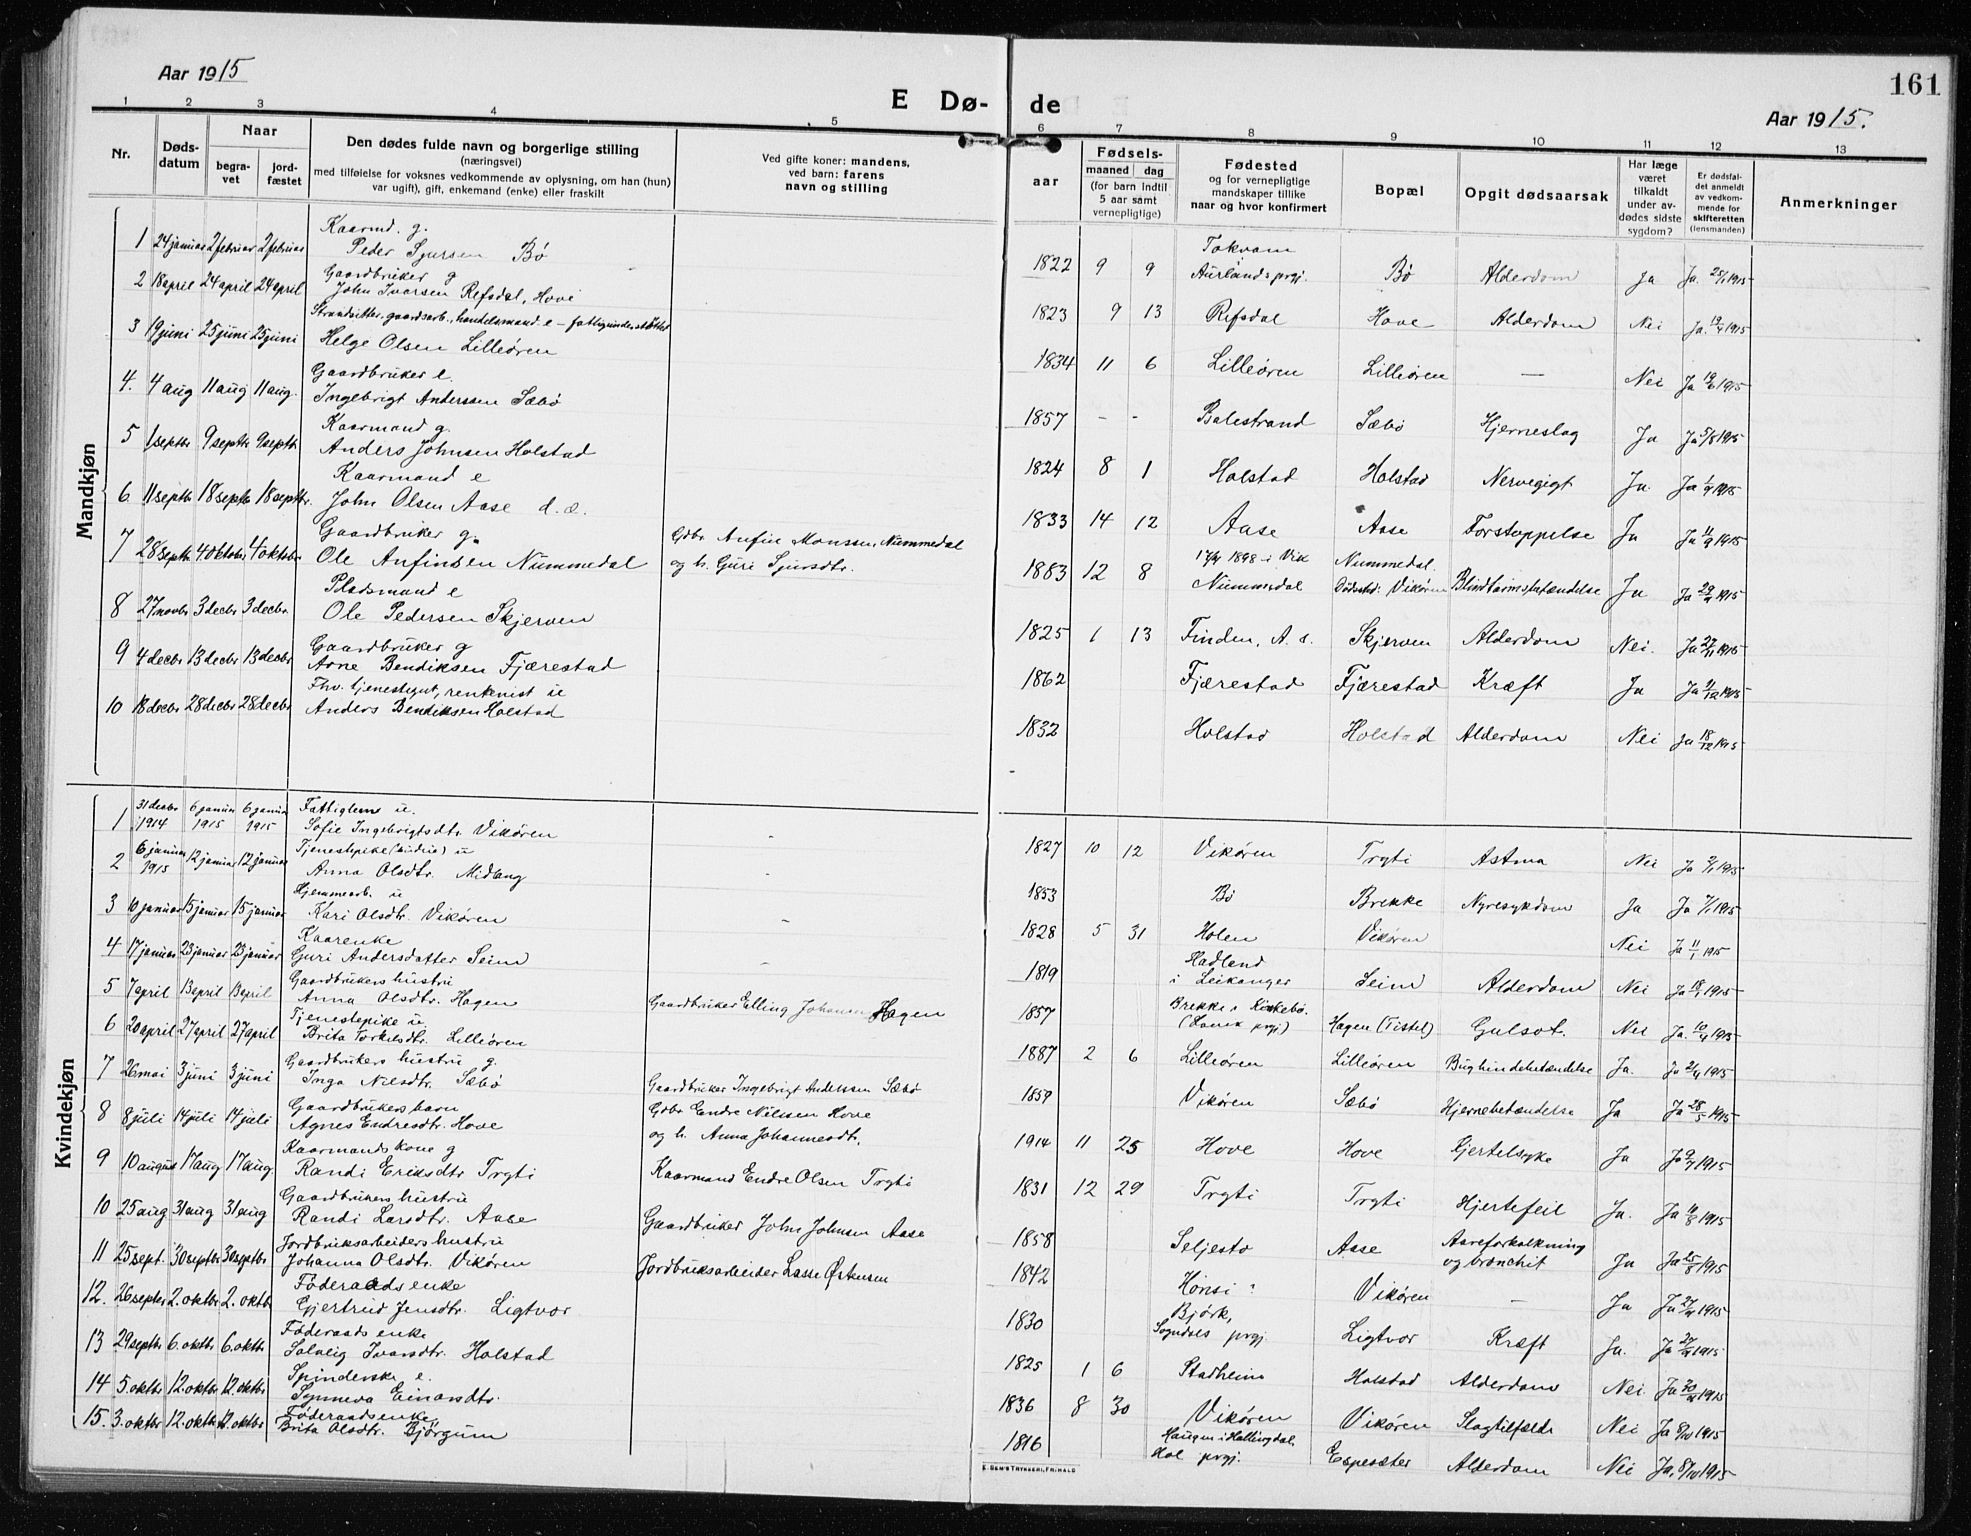 Aar 1915
161
E Dø- de
Aar 1915.
1 2 3 4 5 6 7 8 9 10 11 12 13
Nr.
Døds-
datum
Naar
begra-
vet
jord-
fæstet
Den dødes fulde navn og borgerlige stilling
(næringsvei)
med tilføielse for voksnes vedkommende av oplysning, om han (hun)
var ugift), gift, enkemand (enke) eller fraskilt
Ved gifte koner: mandens,
ved barn: farens
navn og stilling
Fødsels-
aar
maaned dag
(for barn indtil
5 aar samt
vernepligtige)
Fødested
og for vernepligtige
mandskaper tillike
naar og hvor konfirmert
Bopæl
Opgit dødsaarsak
Har læge
været
tilkaldt
under av-
dødes sidste
sygdom?
Er dødsfal-
det anmeldt
av vedkom-
mende for
skifteretten
(lensmanden)
Anmerkninger
Mandkjøn
Kaarmd. g.
1 24 januar 2 februar 2 februar Peder Sjursen Bø 1822 9 9 Tokvam Aurlands prgj. Bø Alderdom Ja Ja. 25/1 1915
Gaardbruker g
2 18 april 24 april 24 april John Ivarsen Refsdal, Hove 1823 9 13 Refsdal Hove Alderdom Nei Ja. 19/4 1915
Strandsitter, gaardsarb., handelsmand e - fattigunderstøttet
3 19 juni 25 juni 25 juni Helge Olsen Lilleøren 1834 11 6 Lilleøren Lilleøren — Nei Ja 19/6 1915
Gaardbruker e.
4. 4 aug 11 aug 11 aug. Ingebrigt Anderssen Sæbø 1857 - - Balestrand Sæbø Hjerneslag Ja Ja 5/8 1915
Kaarmand g.
5 1 septbr 9 septbr 9 septbr. Anders Johnsen Holstad 1824 8 1 Holstad Holstad Nervegigt Ja. Ja 1/9 1915
Kaarmand e
6 11 septbr 18 septbr 18 septbr. John Olsen Aase d. æ. 1833 14 12 Aase Aase Forstoppelse Ja Ja 11/9 1915
Gaardbruker g.
7 28 septbr 4 oktobr 4 oktobr Ole Anfinsen Nummedal Gdbr. Anfin Monssen Nummedal
og h. Guri Sjursdtr. 1883 12 8 1898 i Vik Nummedal Nummedal. Dødssted: Vikøren Blindtarmsbetændelse Ja Ja 29/9 1915
Pladsmand e
8 27 novbr 3 decbr 3 decbr. Ole Pedersen Skjerven 1825 1 13 Finden, A. s. Skjerven Alderdom Nei. Ja 27/11 1915
Gaardbruker g
9 4 decbr 13 decbr 13 decbr Arne Bendiksen Fjærestad 1862 Fjærestad Fjærestad Kræft Ja Ja 9/12 1915
Fhv. tjenestegut, renknist u
10 18 decbr 28 decbr 28 decbr Anders Bendiksen Holstad 1832 Holstad Holstad Alderdom Nei Ja 18/12 1915
Kvindekjøn
Fattiglem u.
1 31 decbr 1914 6 januar 1915 6 januar 1915 Sofie Ingebrigtsdtr. Vikøren 1827 10 12 Vikøren Trgti Astma Nei Ja 2/1 1915
Tjenestepike (budeie) u
2 6 januar 1915 12 januar 12 januar Anna Olsdtr. Midlang 1853 Bø Brekke Nyresykdom Ja Ja 7/1 1915
Hjemmearb. u
3 10 januar 15 januar 15 januar Kari Olsdtr. Vikøren 1828 5 31 Holen Vikøren Nei Ja 11/1 1915
Kaarenke
4 17 januar 23 januar 23 januar Guri Andersdatter Seim 1819 Hadland i Leikanger Seim Alderdom Nei Ja 18/1 1915
Gaardbrukers hustru
5 7 april 13 april 13 april Anna Olsdtr. Hagen Gaardbruker Elling Johansen Hagen 1857 Brekke i Kirkebø. prgj) Hagen (Tistel) Gulsot. Nei Ja. 10/4 1915
Tjenestepike u
6 20 april 27 april 27 april Brita Torkelsdtr. Lilleøren 1887 2 6 Lilleøren Lilleøren Bughindebetændelse Ja. Ja 21/4 1915
Gaardbrukers hustru g.
7 26 mai 3 juni 3 juni Inga Nielsdtr. Sæbø Gaardbruker Ingebrigt Anderssen Sæbø 1859 Vikøren Sæbø Hjernebetændelse Ja Ja 28/5 1915
Gaardbrukers barn
8 8 juli 14 juli 14 juli Agnes Endresdtr. Hove Gdbr. Endre Nilsen Hove
og h. Anna Johannesdtr. 1914 11 25 Hove Hove Gjertelsyke Ja Ja 9/7 1915
Kaarmands kone g
9 10 august 17 aug 17 aug Randi Eriksdtr Trgti Kaarmand Endre Olsen Trgti 1831 12 29 Trgti Trgti Hjertefeil Ja. Ja 10/8 1915
Gaardbrukers hustru
10 25 aug 31 aug 31 aug Randi Larsdtr. Aase Gaardbruker John Johnsen Aase 1858 Seljesto Aase Aareforkalkning
og bronchit Ja Ja 25/8 1915
Jordbruksarbeiders hustru
11 25 sept. 30 septbr 30 septbr Johanna Olsdtr. Vikøren Jordbruksarbeider Lasse Østensen 1842 Hønsi ? Vikøren — Ja Ja 27/9 1915
Føderaads enke
12. 26 septbr 2. oktbr 2. oktbr Gjertrud Jensdtr. Ligtvor 1830 Bjørk, Sogndals prgj. Ligtvor Kræft Ja. Ja 27/9 1915
Føderaads enke
13 29 septbr 6. oktbr 6. oktbr Solveig Ivarsdtr. Holstad 1825 1 6 Stadheim Holstad Alderdom Nei Ja 30/9 1915
Spinderske e.
14 5. oktbr 12. oktbr 12. oktbr Synneva Einarsdtr. 1836 8 30 Vikøren Vikøren Slagtilfælde Nei Ja 8/10 1915
Føderaadsenke
15. 3. oktbr 12. oktbr 12. oktbr Brita Olsdtr. Bjørgum 1816 Haugen i Hallingdal. Hol prgj. Espesæter Alderdom Nei Ja, 8/10 1915
E. SEM'S TRYKKERI, FR.HALD